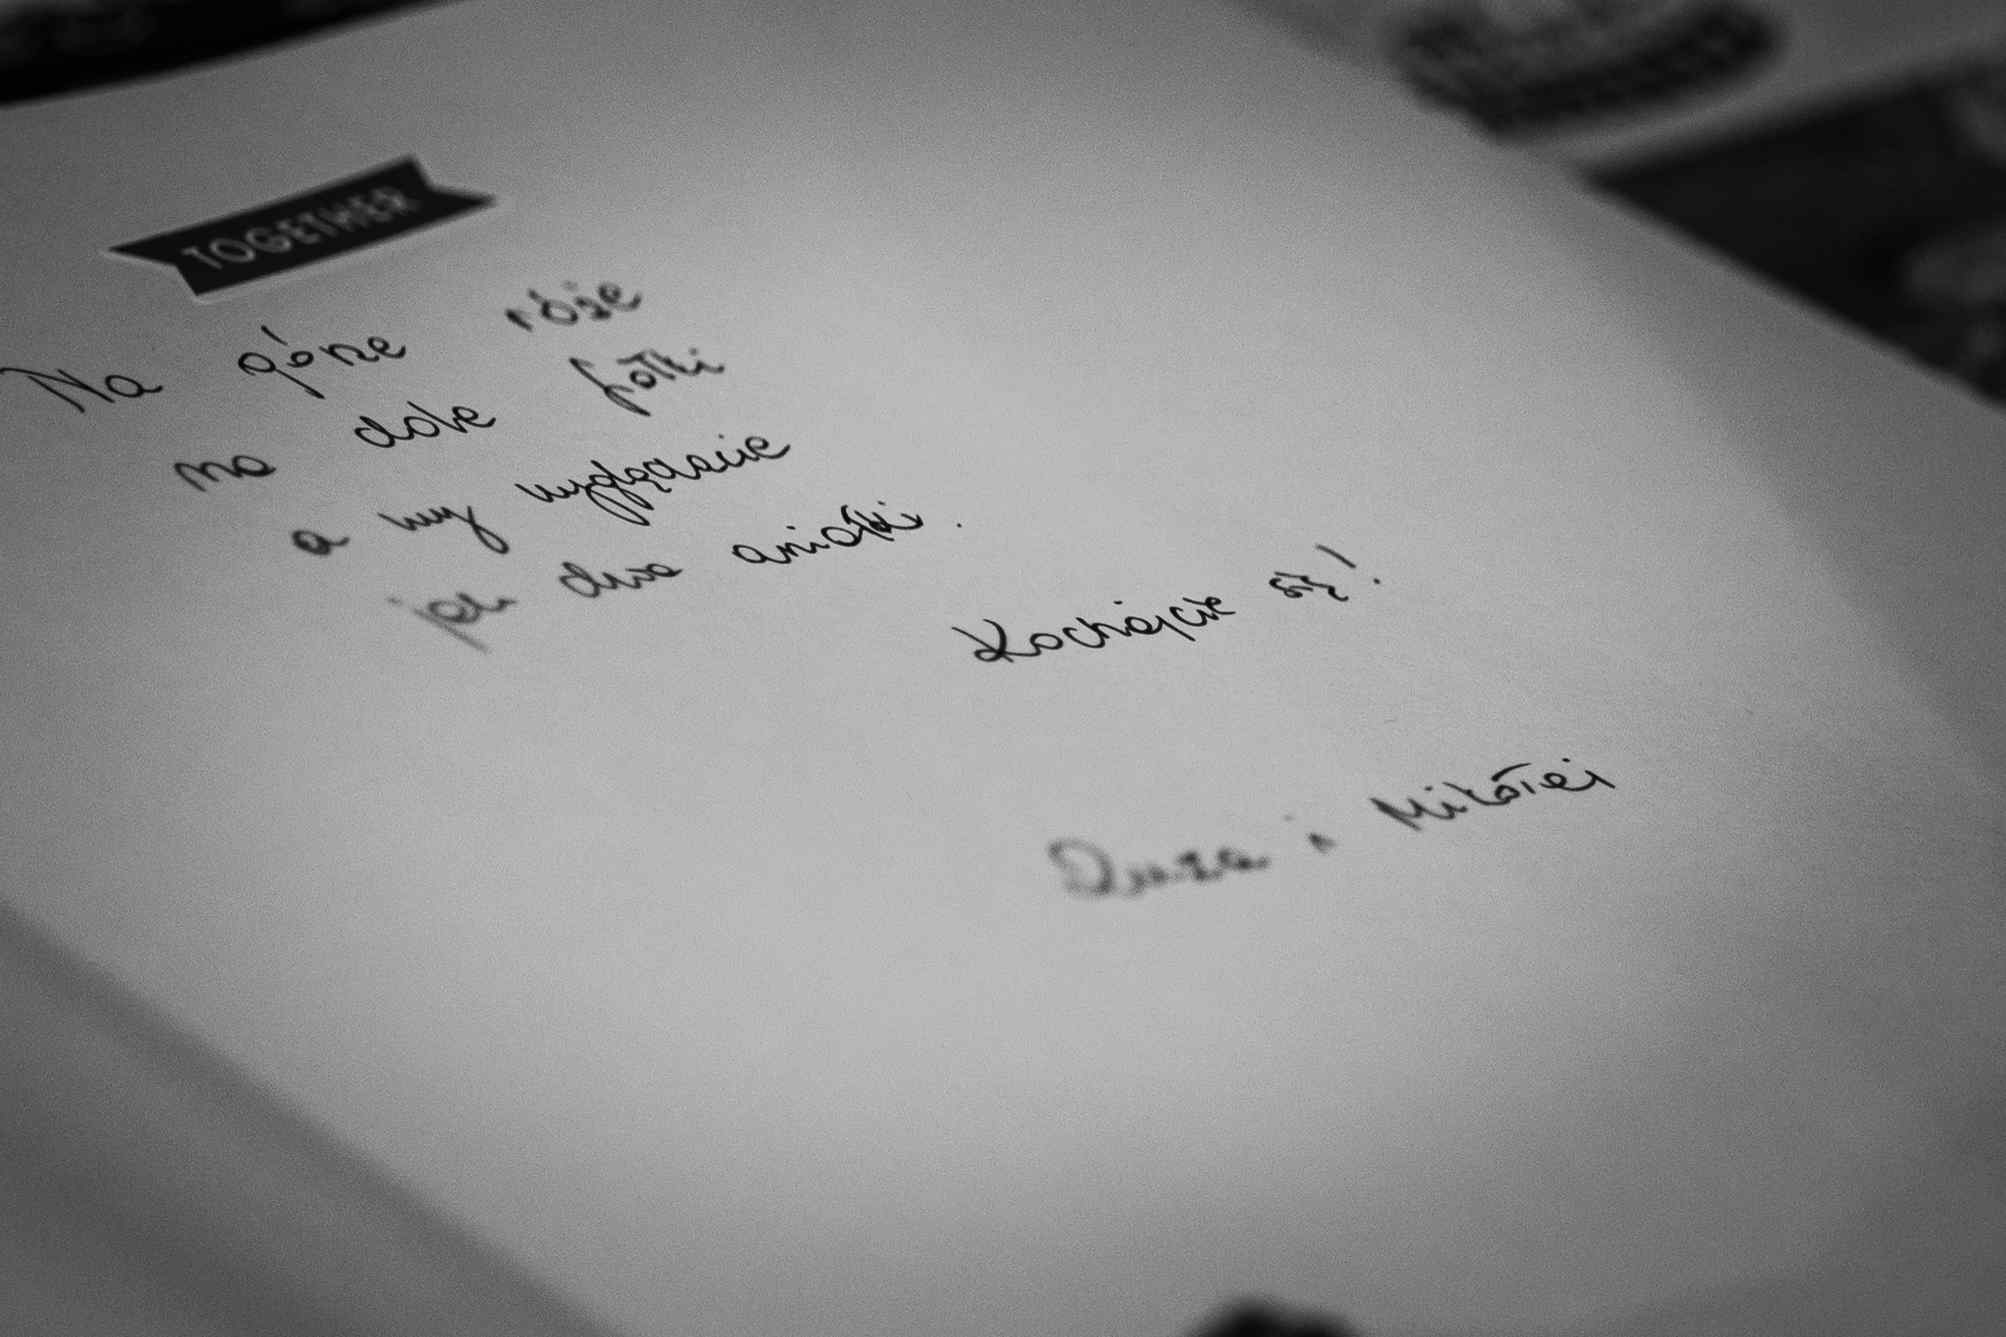 TOGETHER
Na górze róże
na dole fiołki
a wy wyglądacie
jak dwa aniołki.
Kochajcie się!
i Mikołaj